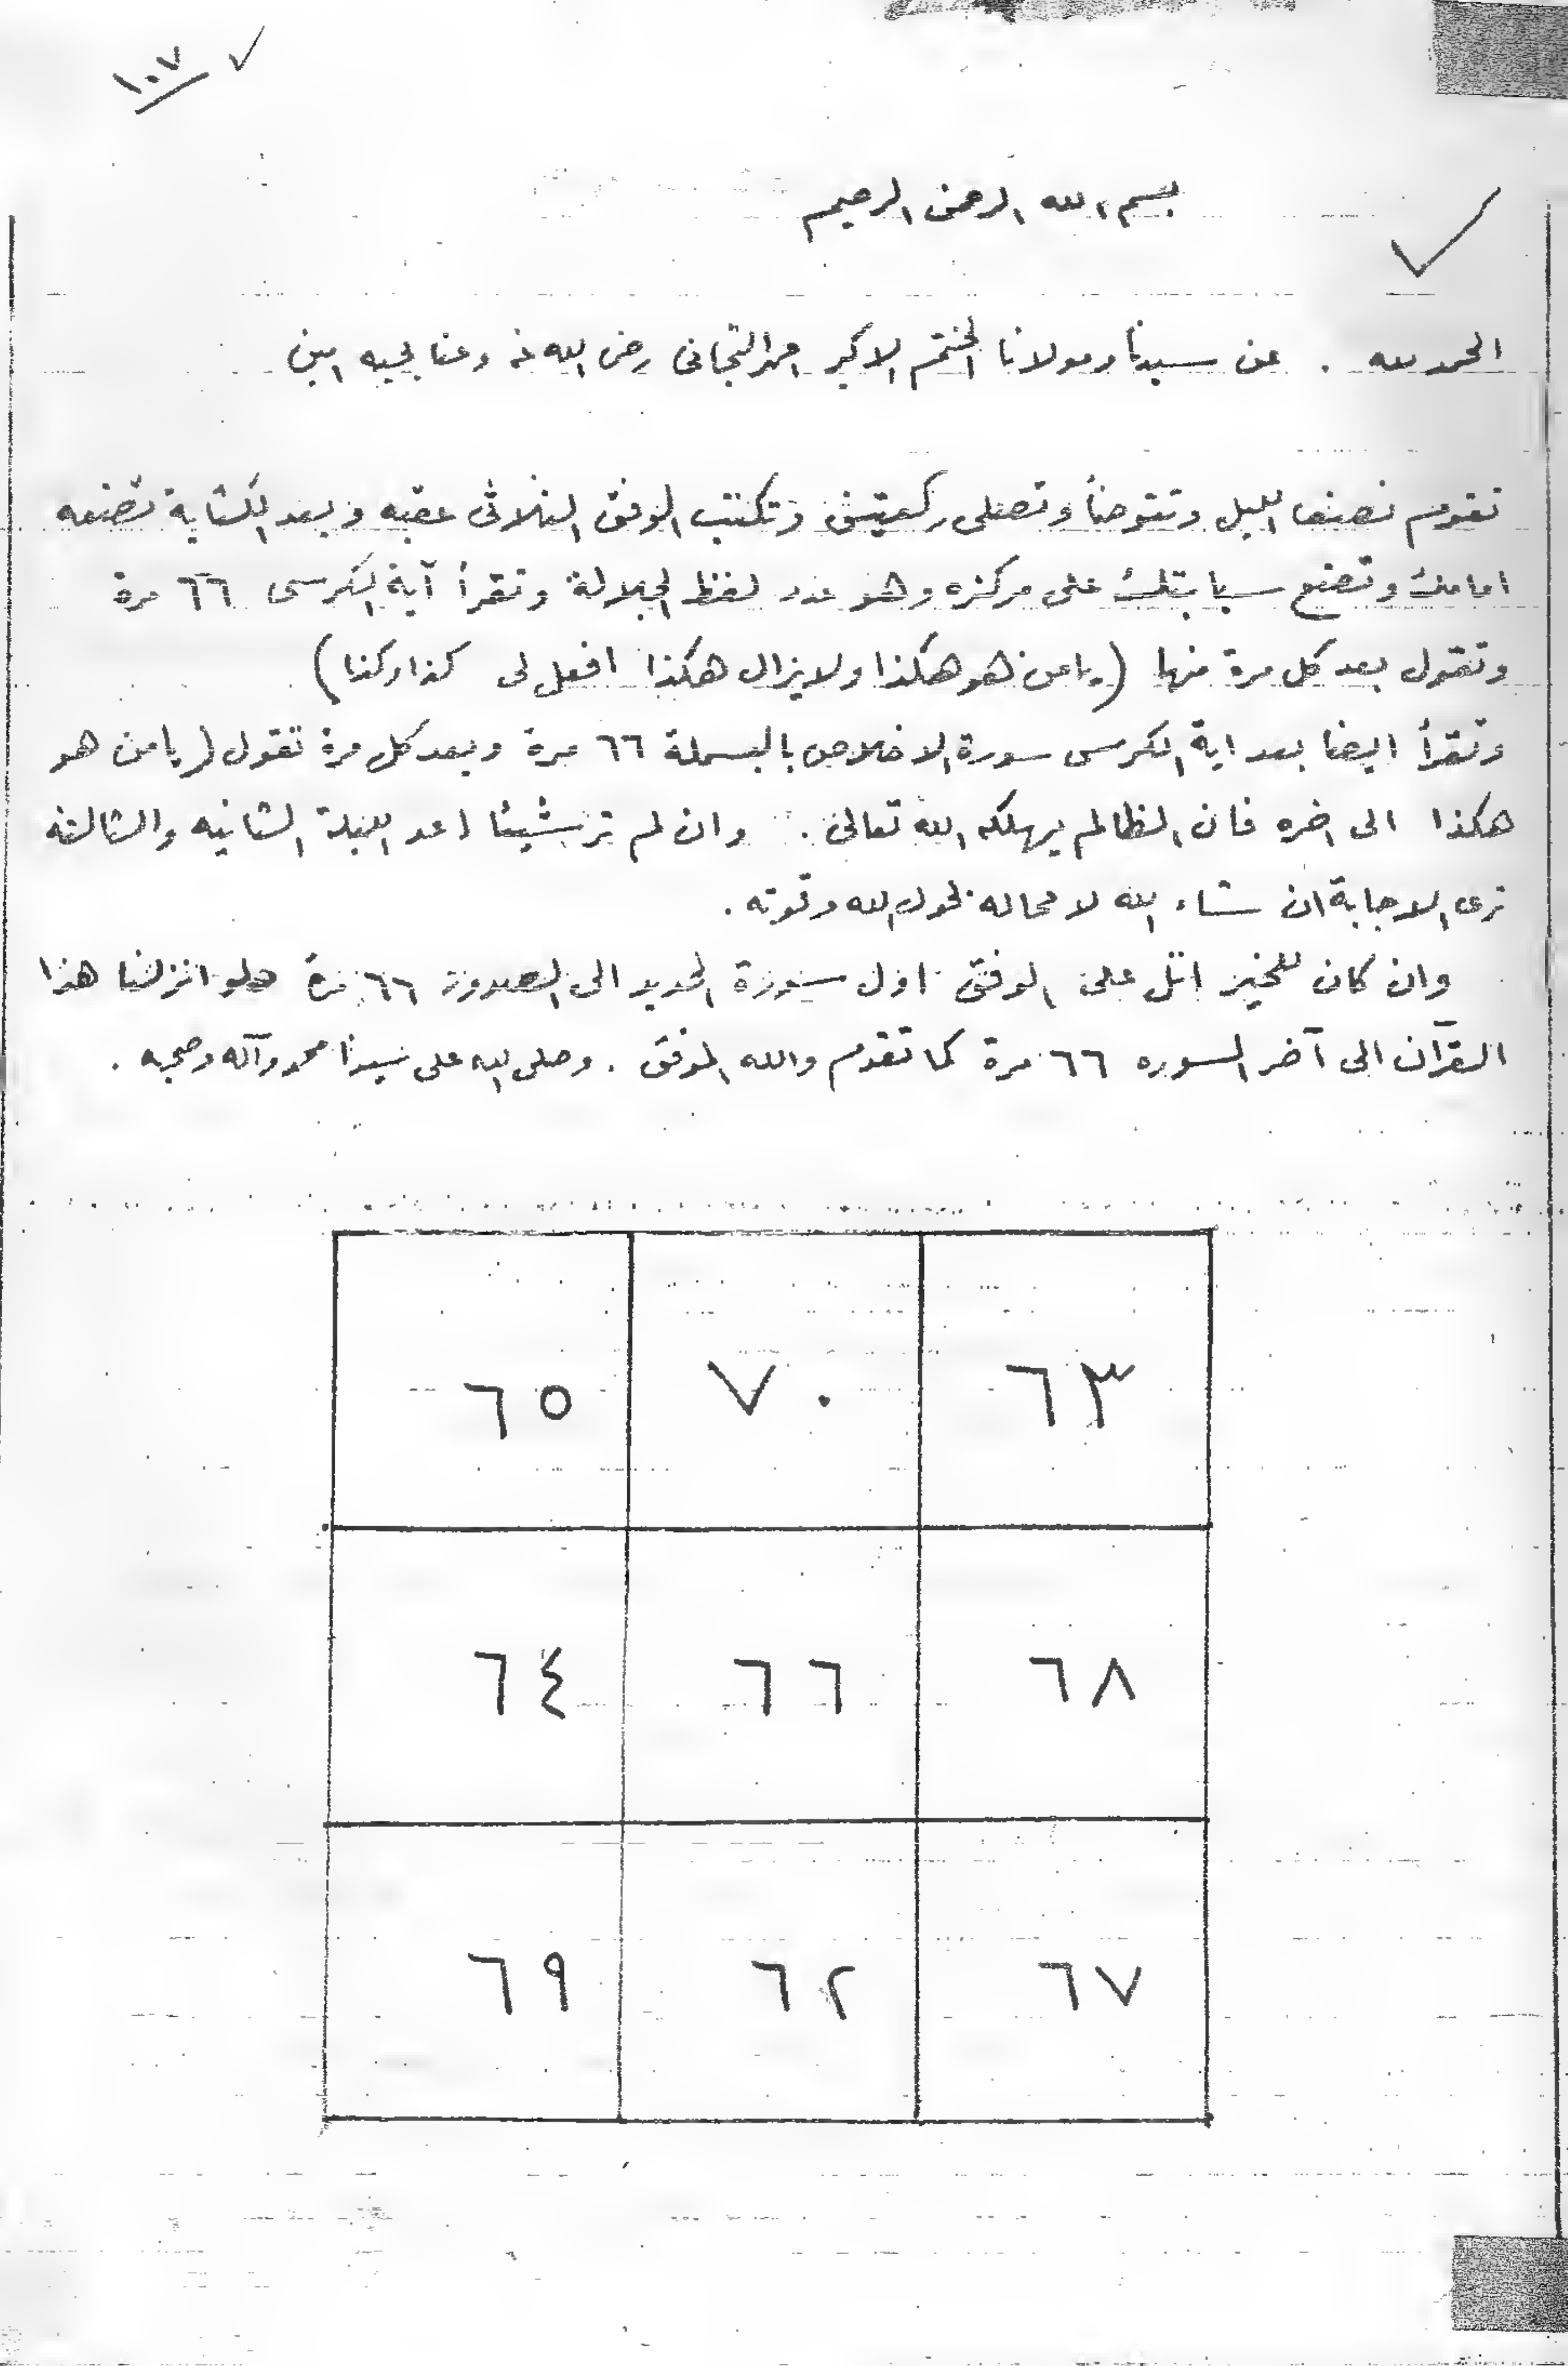 ١٠٧
بسم الله الرحمن الرحيم
الحمد لله . عن سيدنا ومولانا الختم الاكبر احمد التجانى رضى الله عنه وعنا به امين
تقوم نصف الليل وتتوضأ وتصلى ركعتين وتكتب الوفق الثلاثى عقبه وبعد الكتابة تضعه
امامك وتضع سبابتك على مركزه وهو عدد لفظ الجلالة وتقرأ آية الكرسى ٦٦ مرة
وتقول بعد كل مرة منها (يا من هو هكذا ولا يزال هكذا افعل لى كذا وكذا)
وتقرأ ايضا بعد اية الكرسى سورة الاخلاص بالبسملة ٦٦ مرة وبعد كل مرة تقول (يا من هو
هكذا الى اخره فان الظالم يهلكه الله تعالى . وان لم تر شيئا اعد الليلة الثانيه والثالثه
ترى الاجابة ان شاء الله لا محاله بحول الله وقوته .
وان كان للخير اتل على الوفق اول سورة الحديد الى الصدور ٦٦ مرة ولو انزلنا هذا
القرآن الى آخر السوره ٦٦ مرة كما تقدم والله الموفق . وصلى الله على سيدنا محمد وآله وصحبه .
٦٣ ٧٠ ٦٥
٦٨ ٦٦ ٦٤
٦٧ ٦٢ ٦٩